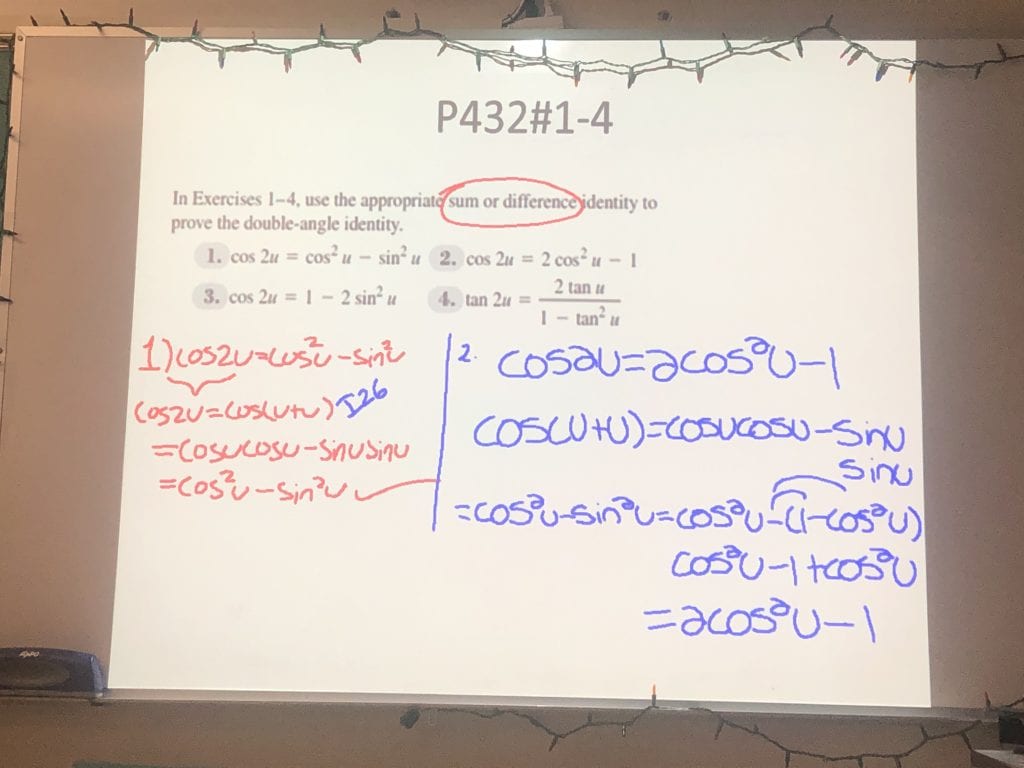 P432#1-4
In Exercises 1–4, use the appropriate sum or difference identity to
prove the double-angle identity.
1. cos 2u = cos² u − sin² u 2. cos 2u = 2 cos² u − 1
3. cos 2u = 1 − 2 sin² u 4. tan 2u = 2 tan u / 1 − tan² u
1) cos2u=cos²u-sin²u
cos2u=cos(u+u)
=cosucosu-sinusinu
=cos²u-sin²u
2. cos2u=2cos²u-1
cos(u+u)=cosucosu-sinu
sinu
=cos²u-sin²u=cos²u-(1-cos²u)
cos²u-1+cos²u
=2cos²u-1
EXPO